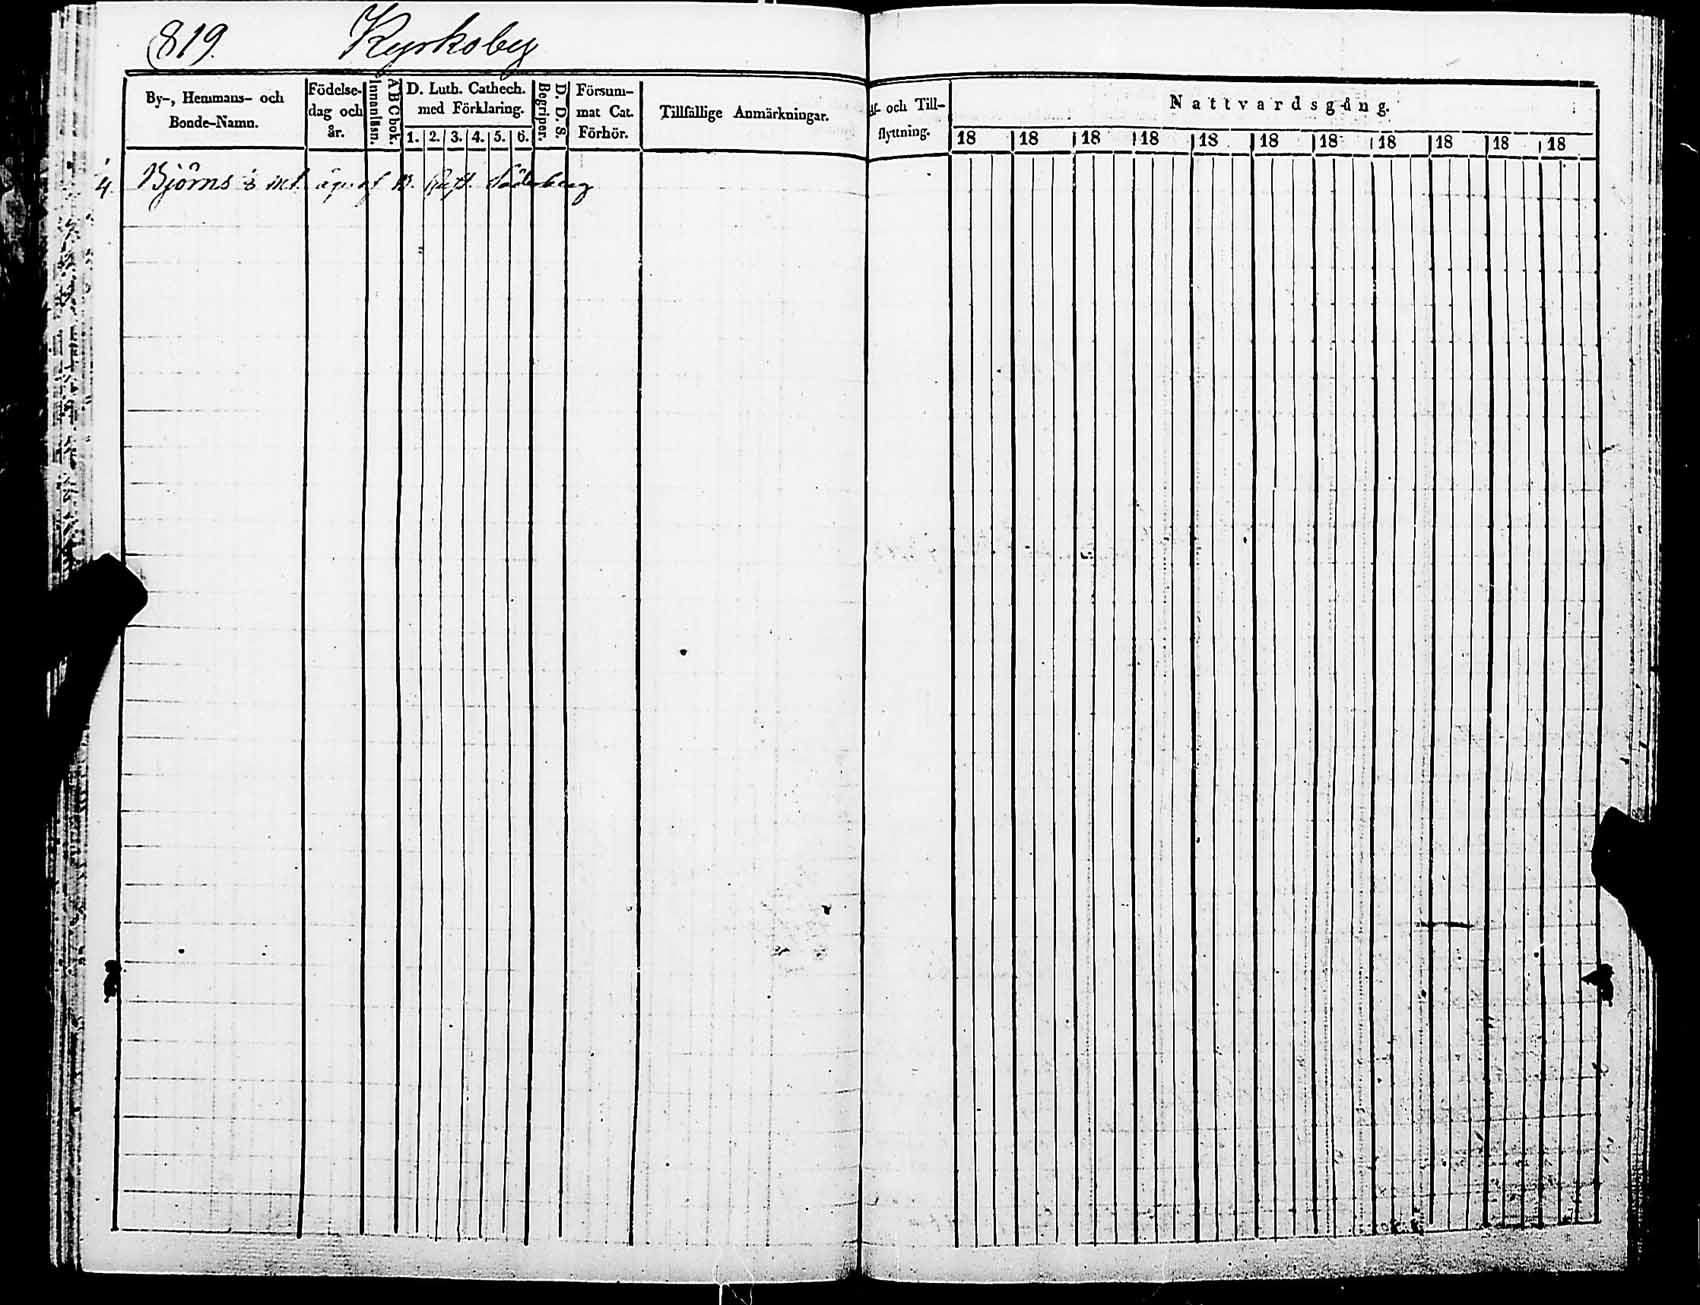 819. Kyrkoby
By-, Hemmans- och Bonde-Namn.
Födelse-dag och år.
Innanläsn.
A B C bok.
D. Luth. Cathech. med Förklaring.
1. 2. 3. 4. 5. 6.
Begriper.
D. D. S.
Försum-mat Cat. Förhör.
Tillfällige Anmärkningar.
och Till-flyttning.
Nattvardsgång.
18 18 18 18 18 18 18 18 18 18 18
4. Björns äg. af Söderberg